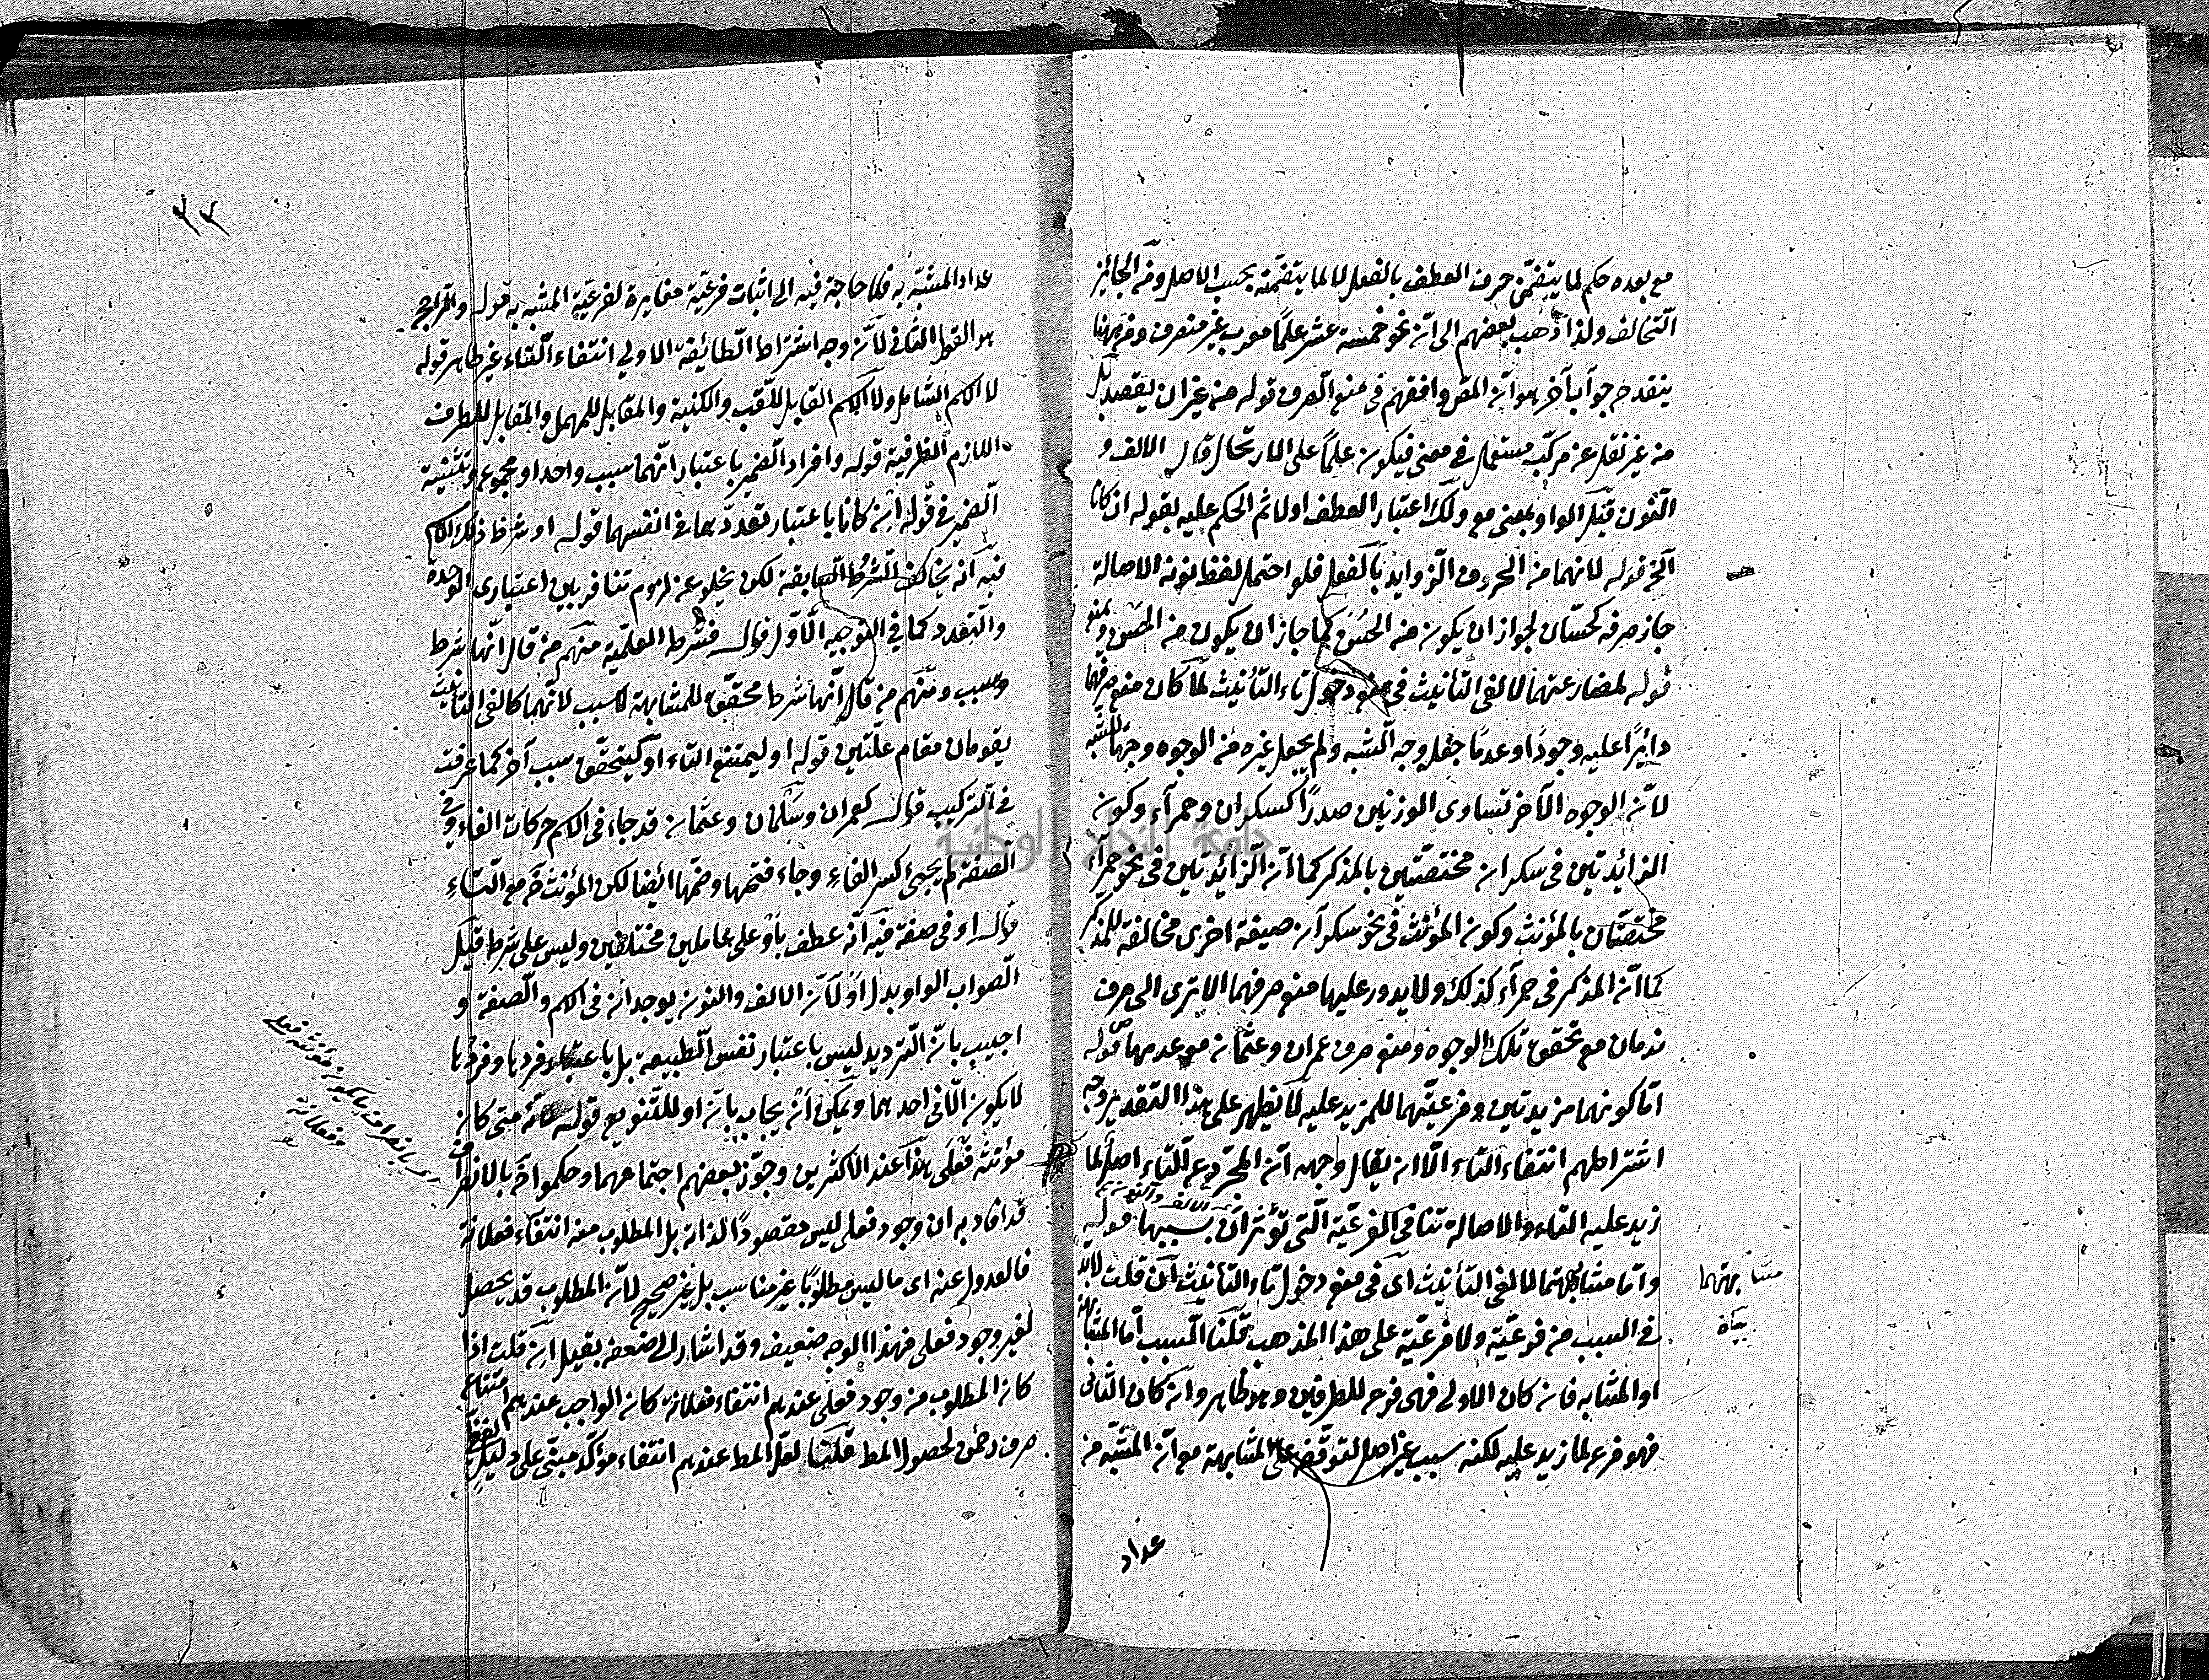 مع بعده حكم لما يتضمن حرف العطف بالفعل لا لما يتضمنه بحسب الاصل ومن الجائز
التخالف ولذا ذهب بعضهم الى ان نحو خمسة عشر علما معرب غير منصرف ومن ههنا
ينقدح جواب آخر هو ان المص وافقهم في منع الصرف قوله من غير ان يقصد بكل
من غير نقل عن مركب مستعمل في معنى فيكون علما على الارتحال قال الالف و
النون قيل الواو بمعنى مع ولك اعتبار العطف اولا ثم الحكم عليه بقوله ان كانا
الخ قوله لانهما من الحروف الزوايد بالفعل فلو احتمل لفظ نونه الاصالة
جاز صرفه كحسان لجواز ان يكون من الحسن كما جاز ان يكون من الحس ومنع
قوله لمضارعتهما لالفي التأنيث في منع دخول تاء التأنيث لما كان منع صرفهما
دايرا عليه وجودا وعدما جعل وجه الشبه ولم يجعل غيره من الوجوه وجها للشبه
لان الوجوه الآخر تساوى الوزنين صدرا كسكران وحمرآء وكون
الزائدتين في سكران مختصتين بالمذكر كما ان الزائدتين في نحو حمرآء
مختصتان بالمؤنث وكون المؤنث في نحو سكرآن صيغة اخرى مخالفة للمذكر
كما ان المذكر في حمرآء كذلك ولا يدور عليها منع صرفهما الا ترى الى صرف
ندمان مع تحقق تلك الوجوه ومنع صرف عمران وعثمان مع عدمها قوله
اما كونهما مزيدتين وفرعيتهما للمزيد عليه لا يظهر على هذا التقدير وجه
اشتراطهم انتفاء التاء الا ان يقال وجهه ان المجرد عن التاء اصل لما
زيد عليه التاء والاصالة تنافي الفرعية التي تؤثران بسببها قوله
واما مشابهتهما لالفي التأنيث اى في منع دخول تاء التأنيث ان قلت لابد
في السبب من فرعية ولا فرعية على هذا المذهب قلنا السبب اما المشابهة
او المشابه فان كان الاولى فهى فرع للطرفين وهو ظاهر وان كان الثاني
فهو فرع لما زيد عليه لكنه سبب غير اصل لتوقفه على المشابهة مع ان المشبه من
مشابهتهما
عداد
٣٢
عداد المشبه به فلا حاجة فيه الى اثبات فرعية مغايرة لفرعية المشبه به قوله والراجح
هو القول الثاني لان وجه اشتراط الطائفة الاولى انتفاء التاء غير ظاهر قوله
لا الاسم الشامل ولا الاسم القابل للقب والكنية والمقابل للمهمل والمقابل للظرف
اللازم الظرفية قوله وافراد الضمير باعتبار انهما سبب واحد او مجموع وتثنية
الضمير في قوله ان كانا باعتبار تعددهما في انفسهما قوله او شرط ذلك الاسم
فيه انه يخالف الشرط السابقة لكن يخلو عن لزوم تنافر بين اعتبارى الوحدة
والتعدد كما في التوجيه الاول قوله فشرط العلمية منهم من قال انها شرط
وسبب ومنهم من قال انها شرط محقق للمشابهة لا سبب لانهما كالفى التأنيث
يقومان مقام علتين قوله او ليمتنع التاء او ليتحقق سبب آخر كما عرفت
في التركيب قال كعمران وسلمان وعثمان قد جاء في الاسم حركات الفاء وفي
الصفة لم يجئ كسر الفاء وجاء فتحها وضمها ايضا لكن المؤنث مع التاء
قال او في صفة فيه انه عطف باو على عاملين مختلفين وليس على شرط قيل
الصواب الواو بدل او لان الالف والنون يوجد ان في الاسم والصفة و
اجيب بان الترديد ليس باعتبار نفس الطبيعة بل باعتبار فردها وفردها
لا يكون الا في احدهما ويمكن ان يجاب بان او للتنويع قوله لانه متى كان
مؤنثه فعلى هذا عند الاكثرين وجوز بعضهم اجتماعهما وحكموا بالانصراف
قد افاد به ان وجود فعلى ليس مقصودا لذاته بل المطلوب منه انتفاء فعلانة
فالعدول عنه اى ما ليس مطلوبا غير مناسب بل غير صحيح لان المطلوب قد يحصل
لغير وجود فعلى فهذا الوجه ضعيف وقد اشار الى ضعفه بقيل ان قلت اذا
كان المطلوب من وجود فعلى عندهم انتفاء فعلانة كان الواجب عندهم امتناع
صرف رحمن لحصول المط قلنا لعل المط عندهم انتفاء مؤكد مبنى على دليل
اى بانصراف ما يكون مؤنثه فعلى
وفعلانة